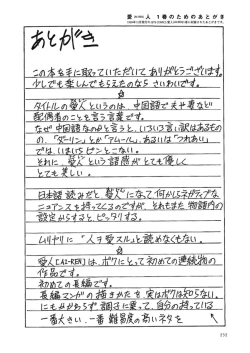 愛 人 1巻のためのあとがき
あとがき
この本を手に取っていただいてありがとうございます。
少しでも楽しんでもらえたのならさいわいです。
☆
タイトルの愛人というのは、中国語で夫や妻など
配偶者のことを言う言葉です。
なぜ中国語なのかと言うと、いろいろ言い訳はあるもの
の、「ダーリン」とか「アムール」、あるいは「つれあい」
では、いまいちピンとこない。
それに愛人という語感がとても優しく
とても美しい。
日本語読みだと愛人になって何かしらネガティブな
ニュアンスを持ってくるのですが、それもまた物語内の
設定からすると、ピッタリする。
ムリヤリに「人ヲ愛スル」と読めなくもない。
☆
愛人[AI-REN]は、ボクにとって初めての連続物の
作品です。
初めての長編です。
長編マンガの描きかたを実はボクは知らない。
にもかかわらず、調子に乗って、自分の持っている
一番大きい、一番難易度の高いネタを
232